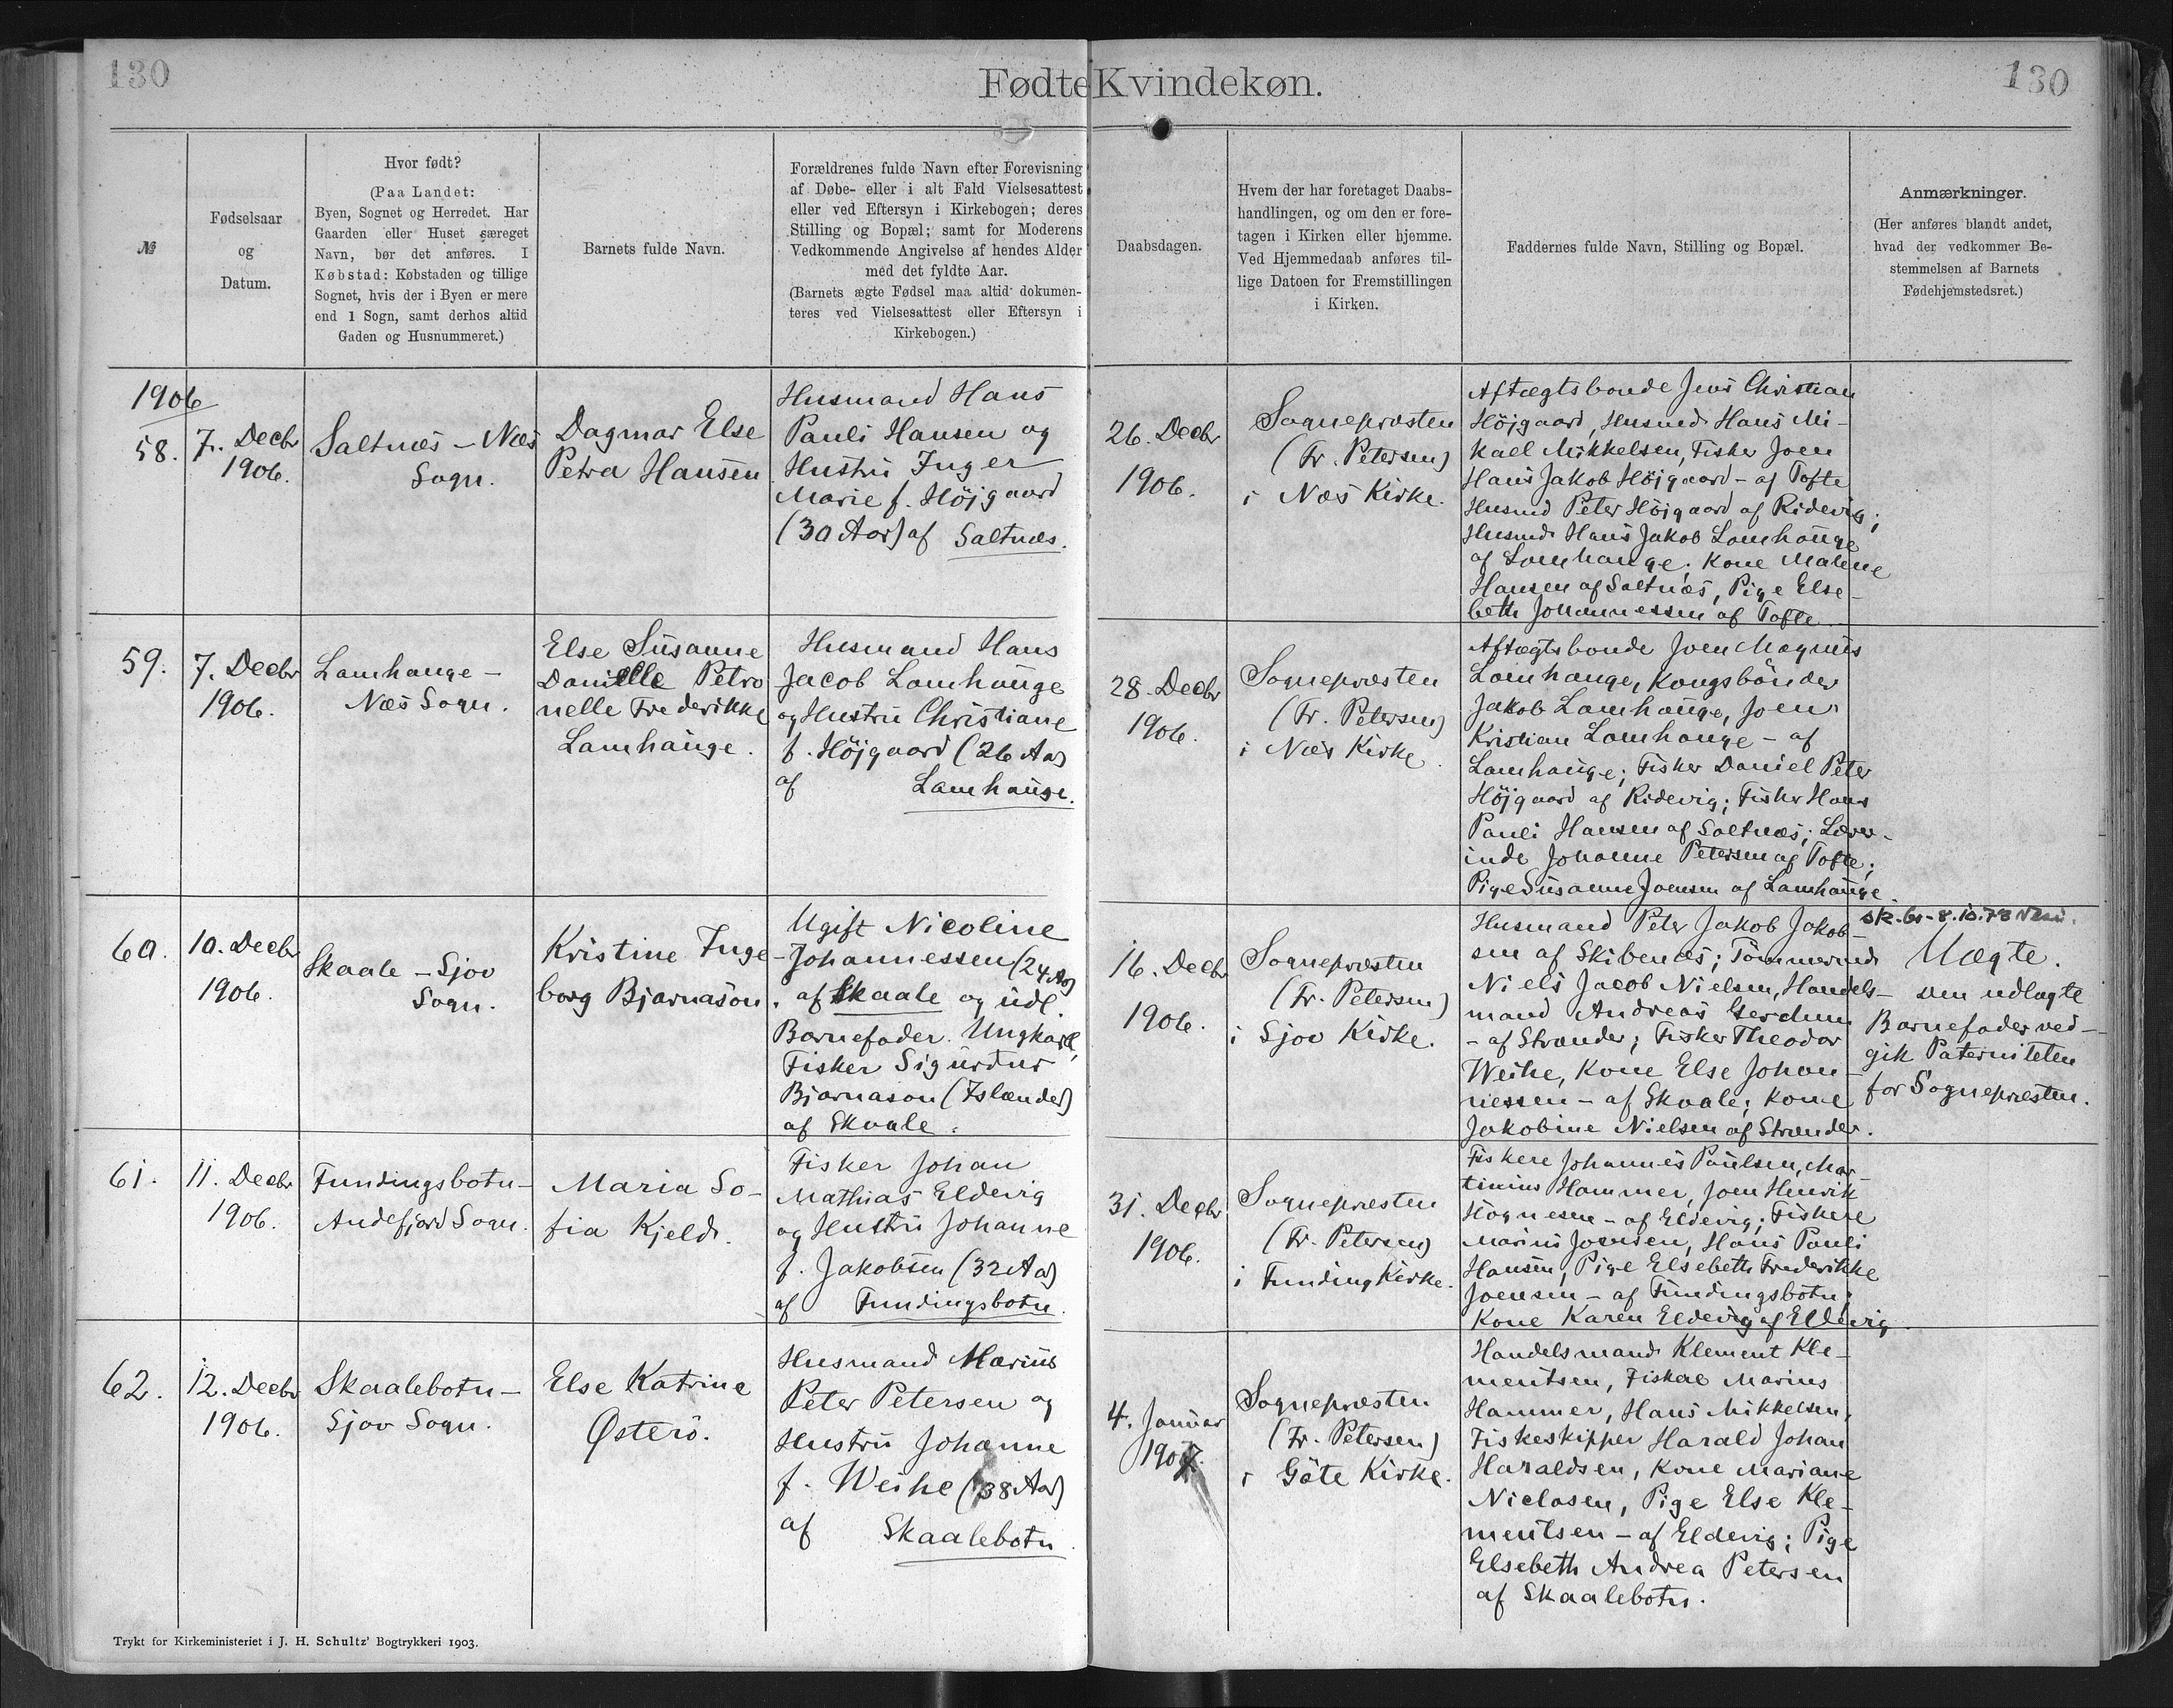 130
Fødte Kvindekøn.
130
№
Fødselsaar
og
Datum.
Hvor født?
(Paa Landet:
Byen, Sognet og Herredet. Har
Gaarden eller Huset særeget
Navn, bør det anføres. I
Købstad: Købstaden og tillige
Sognet, hvis der i Byen er mere
end 1 Sogn, samt derhos altid
Gaden og Husnummeret.)
Barnets fulde Navn.
Forældrenes fulde Navn efter Forevisning
af Døbe- eller i alt Fald Vielsesattest
eller ved Eftersyn i Kirkebogen; deres
Stilling og Bopæl; samt for Moderens
Vedkommende Angivelse af hendes Alder
med det fyldte Aar.
(Barnets ægte Fødsel maa altid dokumen-
teres ved Vielsesattest eller Eftersyn i
Kirkebogen.)
Daabsdagen.
Hvem der har foretaget Daabs-
handlingen, og om den er fore-
tagen i Kirken eller hjemme.
Ved Hjemmedaab anføres til-
lige Datoen for Fremstillingen
i Kirken.
Faddernes fulde Navn, Stilling og Bopæl.
Anmærkninger.
(Her anføres blandt andet,
hvad der vedkommer Be-
stemmelsen af Barnets
Fødehjemstedsret.)
1906
58.
7. Decbr
1906.
Saltnæs – Næs
Sogn.
Dagmar Else
Petra Hansen
Husmand Hans
Pauli Hansen og
Hustru Inger
Marie f. Höjgaard
(30 Aar) af Saltnæs.
26. Decbr
1906.
Sognepræsten
(Fr. Petersen)
i Næs Kirke.
Aftægtsbonde Jens Christian
Höjgaard, Husmd. Hans Mi-
kael Mikkelsen, Fisker Joen
Hans Jakob Höjgaard – af Tofte
Husmd Peter Höjgaard af Ridevig;
Husmd. Hans Jakob Lamhauge
af Lamhauge; Kone Malene
Hansen af Saltnæs, Pige Else-
beth Johannessen af Tofte.
59.
7. Decbr
1906.
Lamhauge –
Næs Sogn.
Else Susanne
Danielle Petro
nelle Frederikke
Lamhauge.
Husmand Hans
Jacob Lamhauge
og Hustru Christiane
f. Höjgaard (26 Aar)
af Lamhauge.
28. Decbr
1906.
Sognepræsten
(Fr. Petersen)
i Næs Kirke.
Aftægtsbonde Joen Magnus
Lamhauge, Kongsbönder
Jakob Lamhauge, Joen
Kristian Lamhauge – af
Lamhauge; Fisker Daniel Peter
Höjgaard af Ridevig; Fisker Hans
Pauli Hansen af Saltnæs; Lærer-
inde Johanne Petersen af Tofte;
Pige Susanne Joensen af Lamhauge.
60.
10. Decbr
1906.
Skaale – Sjov
Sogn.
Kristine Inge-
borg Bjarnason.
Ugift Nicoline
Johannessen (24 Aar)
af Skaale og udl.
Barnefader. Ungkarl,
Fisker Sigurdur
Bjarnason (Islænder)
af Skaale.
16. Decbr
1906.
Sognepræsten
(Fr. Petersen)
i Sjov Kirke.
Husmand Peter Jakob Jakob-
sen af Skibenæs; Tömmermd
Niels Jacob Nielsen, Handels-
mand Andreas Gerdum
– af Strænder; Fisker Theodor
Weihe, Kone Else Johan-
nessen – af Skaale; Kone
Jakobine Nielsen af Strænder.
sk. br – 8.10.78
Uægte.
Den udlagte
Barnefader ved-
gik Paterniteten
for Sognepræsten.
61.
11. Decbr
1906.
Fundingsbotn –
Andefjord Sogn.
Maria So-
fia Kjeld.
Fisker Johan
Mathias Eldevig
og Hustru Johanne
f. Jakobsen (32 Aar)
af Fundingsbotn.
31. Decbr
1906.
Sognepræsten
(Fr. Petersen)
i Funding Kirke.
Fiskere Johannes Paulsen, Mar-
tinius Hammer, Joen Henrik
Högnesen – af Eldevig; Fiskere
Marius Joensen, Hans Pauli
Hansen, Pige Elsebeth Frederikke
Joensen – af Fundingsbotn;
Kone Karen Eldevig af Eldevig.
62.
12. Decbr
1906.
Skaalebotn –
Sjov Sogn.
Else Katrine
Østerö.
Husmand Marius
Peter Petersen og
Hustru Johanne
f. Weihe (38 Aar)
af Skaalebotn.
4. Januar
1907.
Sognepræsten
(Fr. Petersen)
i Göte Kirke.
Handelsmand Klement Kle-
mentsen, Fiskere Marius
Hammer, Hans Mikkelsen,
Fiskeskipper Harald Johan
Haraldsen, Kone Mariane
Niclasen, Pige Else Kle-
mentsen – af Eldevig; Pige
Elsebeth Andrea Petersen
af Skaalebotn.
Trykt for Kirkeministeriet i J. H. Schultz' Bogtrykkeri 1903.